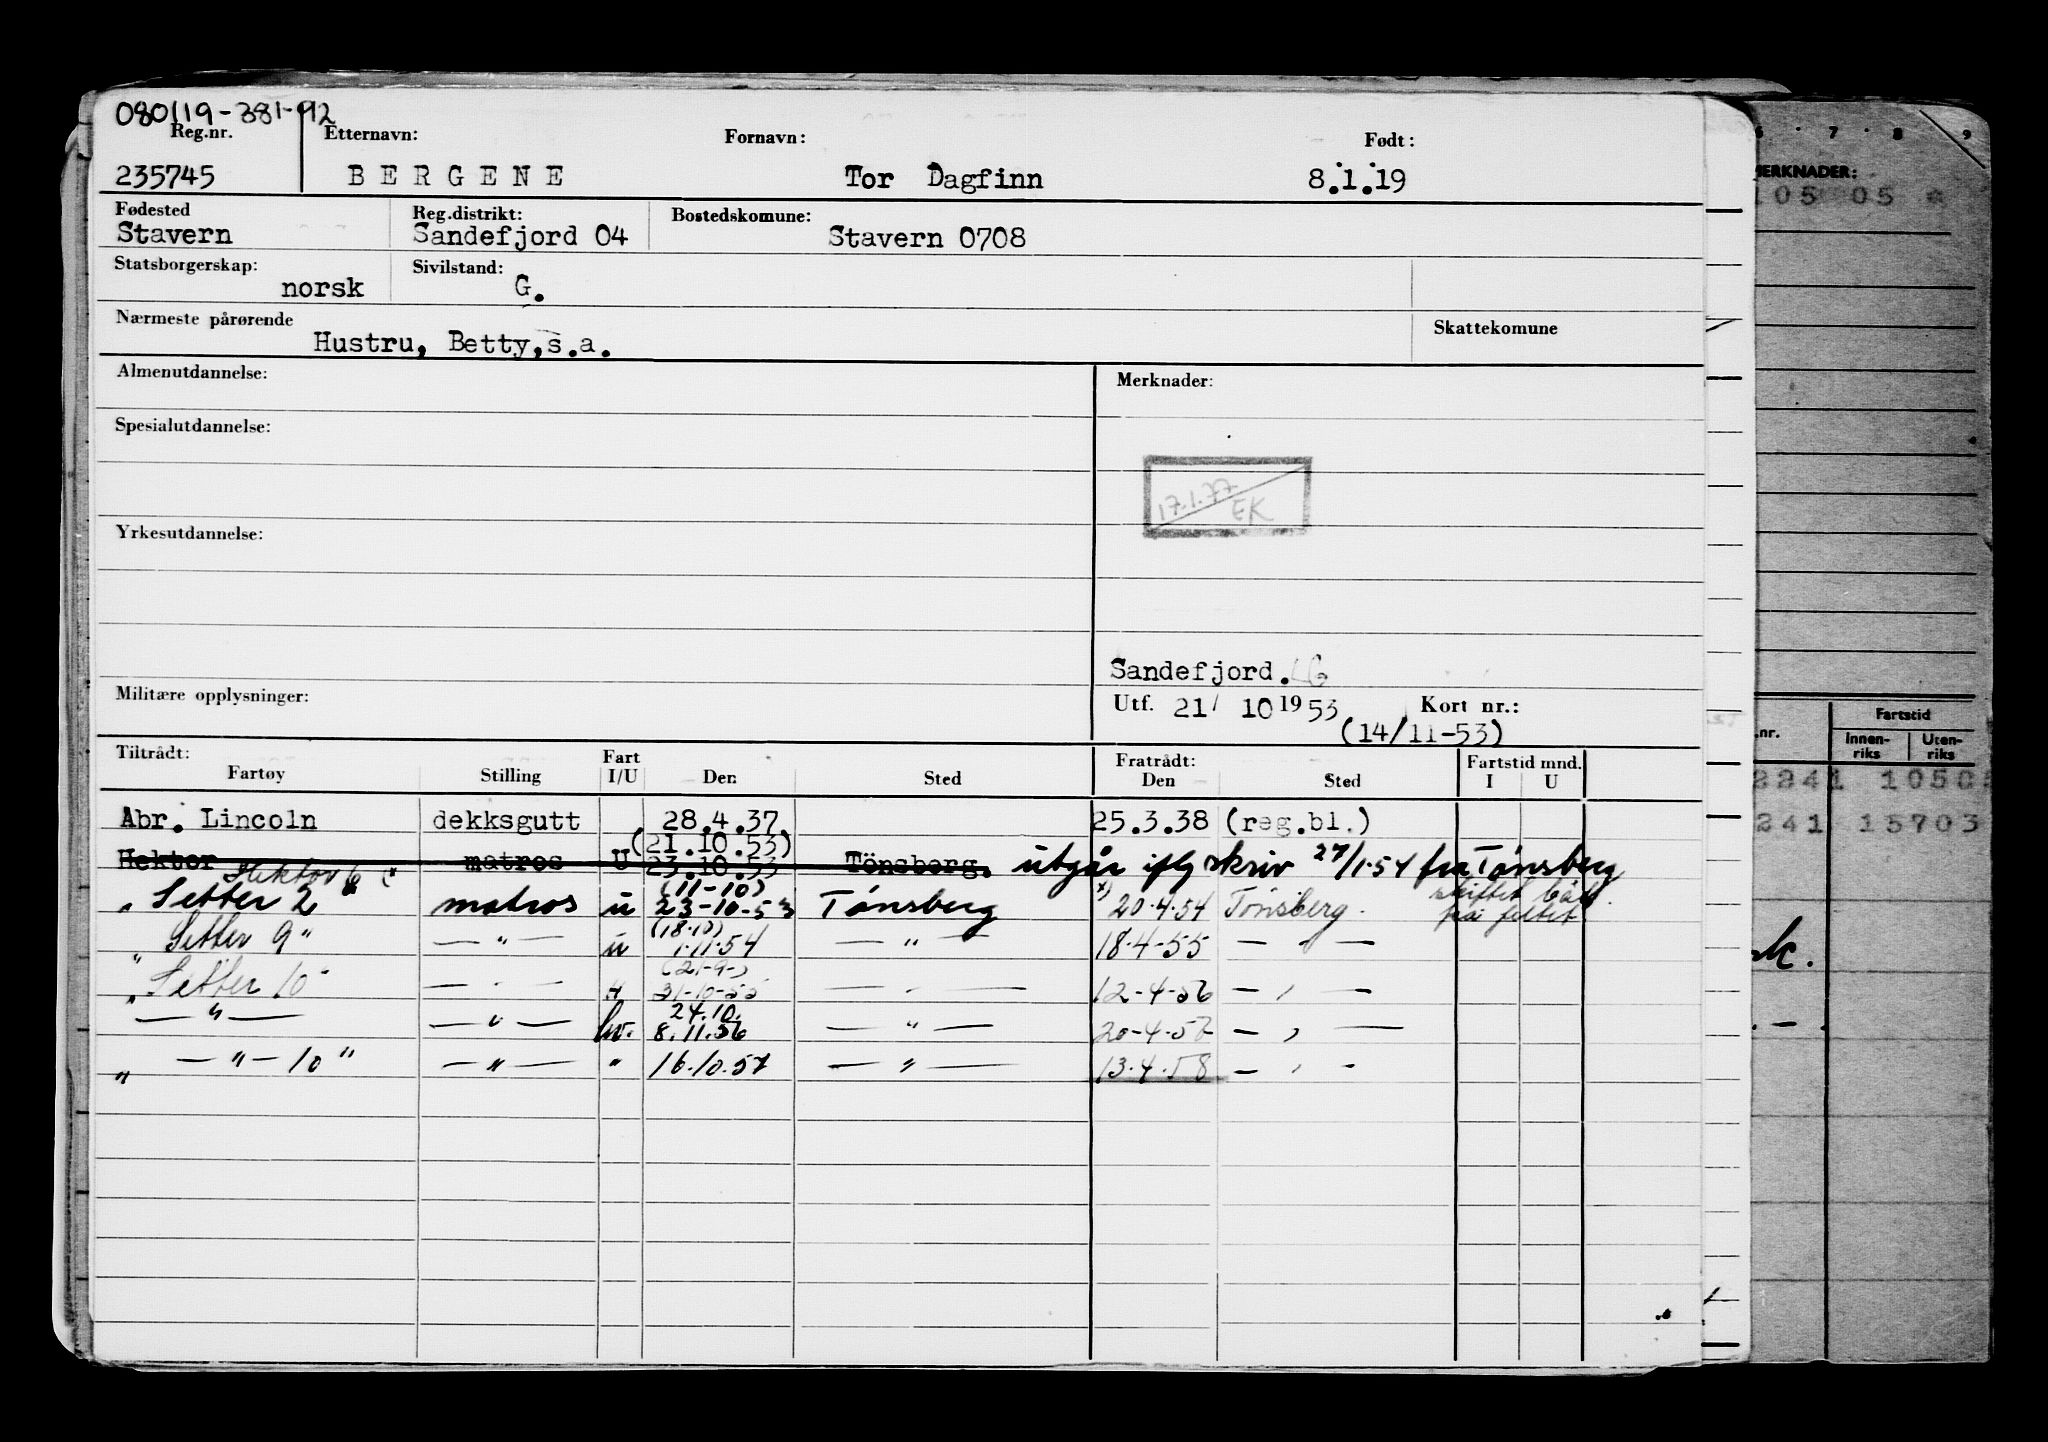 080119-381-92
Reg.nr. Etternavn: Fornavn: Født:
235745 BERGENE Tor Dagfinn 8.1.19
Fødested Reg.distrikt: Bostedskomune:
Stavern Sandefjord 04 Stavern 0708
Statsborgerskap: Sivilstand:
norsk G.
Nærmeste pårørende Skattekomune
Hustru, Betty, s.a.
Almenutdannelse: Merknader:
Spesialutdannelse:
17.1.77
EK
Yrkesutdannelse:
Sandefjord. LG
Militære opplysninger: Utf. 21/ 10 1953 Kort nr.:
(14/11-53)
Tiltrådt: Fart Fratrådt: Fartstid mnd.
Fartøy Stilling I/U Den Sted Den Sted I U
Abr. Lincoln dekksgutt 28.4.37. 25.3.38 (reg.bl.)
(21.10.53)
Hektor matros U 23.10.53 Tönsberg. utgår iflg skriv 27/1.54 fra Tønsberg
Hektor 6 (11-10) skiftet båt
" Setter 2 " matros u 23-10-53 Tønsberg x) 20.4.54 Tønsberg. på feltet.
(18.10)
" Setter 9 " — " — u 1.11.54 — " — 18.4-55 — " —
(21-9-)
" Setter 10 " — " — 31-10-55 — " — 12-4-56 — " —
24.10.
— " — — " — hv. 8.11.56 — " — 20-4-57 — " —
" — " — 10 " — " — " 16.10.57 — " — 13.4.58 — " —
6 . 7 . 8 9
MERKNADER:
105 05 *
.nr. Fartstid
Innen-riks Uten-riks
2241 10505
241 15703